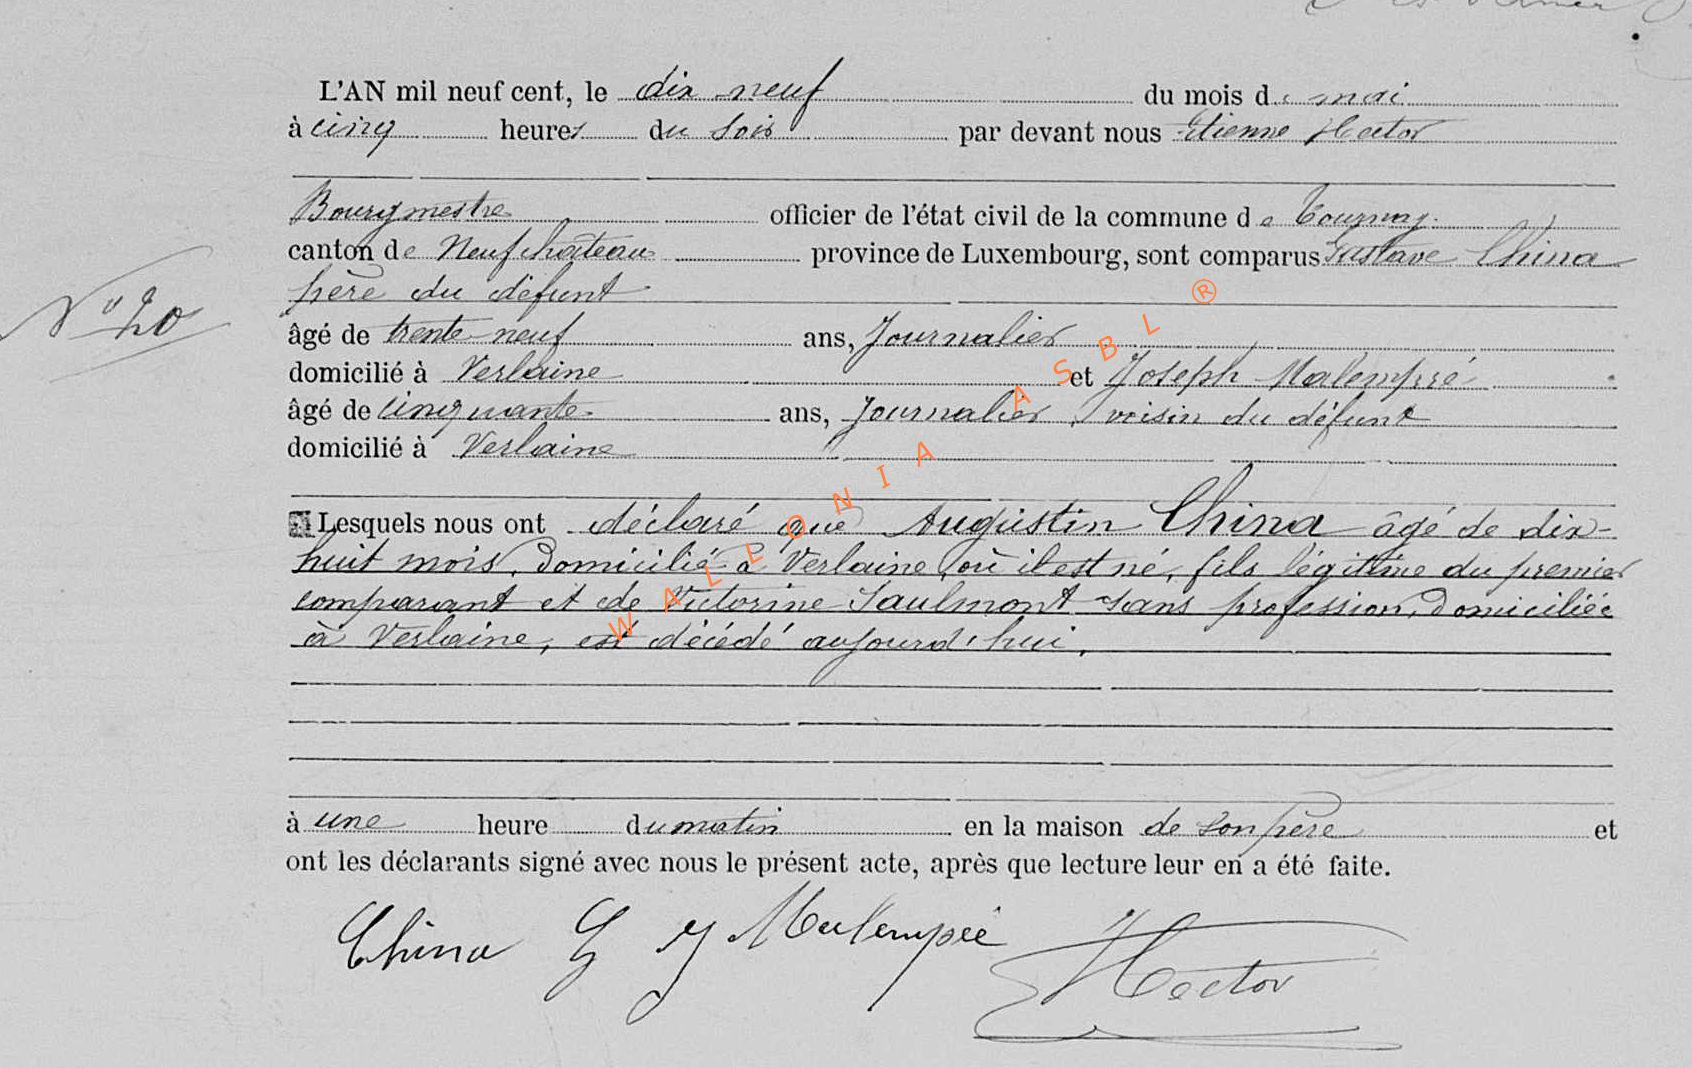 L'AN mil neuf cent, le dix neuf du mois de mai
à cinq heures du soir par devant nous Etienne Hector
Bourgmestre officier de l'état civil de la commune de Tournay.
canton de Neufchâteau province de Luxembourg, sont comparus Gustave China
père du défunt
N° 20
âgé de trente-neuf ans, Journalier
domicilié à Verlaine et Joseph Malempré
âgé de cinquante ans, Journalier, voisin du défunt
domicilié à Verlaine
Lesquels nous ont déclaré que Augustin China âgé de dix-
huit mois, domicilié à Verlaine, où il est né, fils légitime du premier
comparant et de Victorine Saulmont sans profession, domiciliée
à Verlaine, est décédé aujourd'hui,
à une heure du matin en la maison de son père et
ont les déclarants signé avec nous le présent acte, après que lecture leur en a été faite.
China G J Malempré Hector
WALLONIA ASBL ®